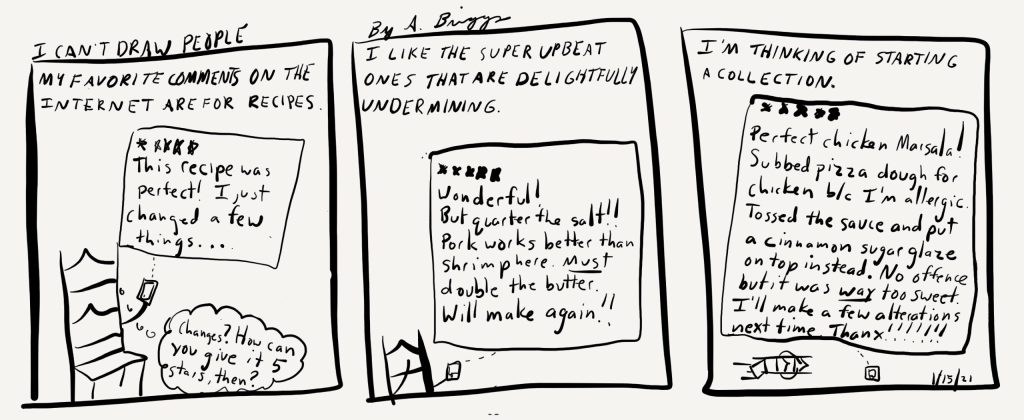 I CAN'T DRAW PEOPLE
By A. Briggs
MY FAVORITE COMMENTS ON THE
INTERNET ARE FOR RECIPES.
This recipe was
perfect! I just
changed a few
things....
Changes? How can
you give it 5
stars, then?
I LIKE THE SUPER UPBEAT
ONES THAT ARE DELIGHTFULLY
UNDERMINING.
Wonderful!
But quarter the salt!!
Pork works better than
shrimp here. Must
double the butter.
Will make again!!
I'M THINKING OF STARTING
A COLLECTION.
Perfect chicken Marsala!
Subbed pizza dough for
chicken b/c I'm allergic.
Tossed the sauce and put
a cinnamon sugar glaze
on top instead. No offence
but it was way too sweet.
I'll make a few alterations
next time. Thanx!!!!!!!
1/15/21